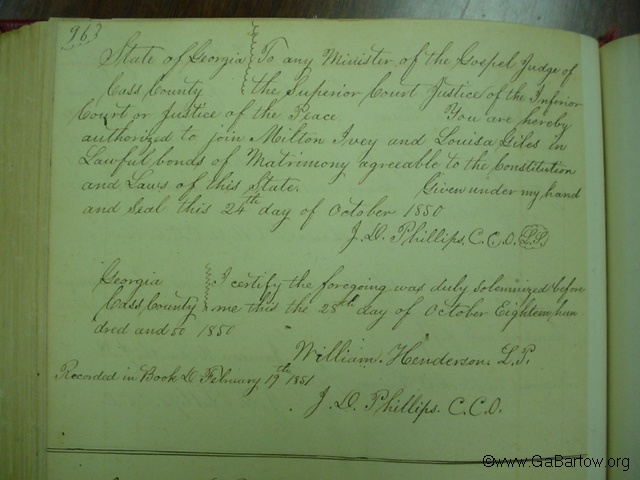 963
State of Georgia To any Minister of the Gospel Judge of
Cass County the Superior Court Justice of the Inferior
Court or Justice of the Peace You are hereby
authorized to join Milton Ivey and Louisa Giles in
Lawful bonds of Matrimony agreeable to the Constitution
and Laws of this State. Given under my hand
and Seal this 24th day of October 1850
J. D. Phillips, C.C.O.
Georgia I certify the foregoing was duly solemnized before
Cass County me this the 28th day of October Eighteen hun
dred and 50 1850
William. Henderson. J.P.
Recorded in Book D February 19th 1851
J. D. Phillips. C.C.O.
©www.GaBartow.org